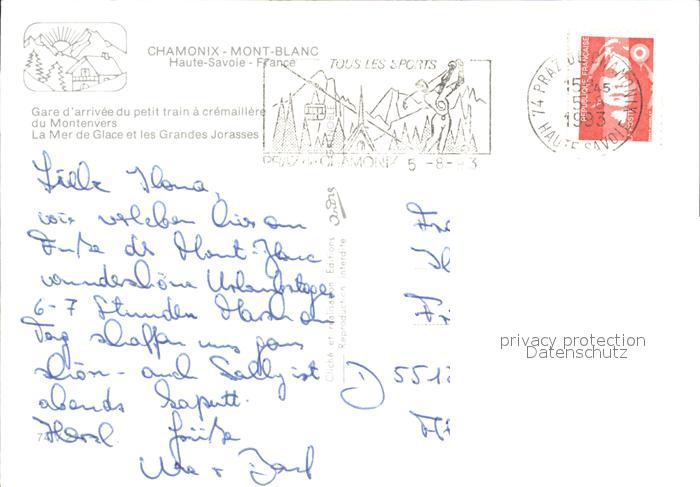 CHAMONIX - MONT-BLANC
Haute-Savoie - France
TOUS LES SPORTS
PRAZ CHAMONIX 5-8-93
74 PRAZ DE CHAMONIX
15 45
5-8
1993
HAUTE SAVOIE
REPUBLIQUE FRANÇAISE
Gare d'arrivée du petit train à crémaillère
du Montenvers
La Mer de Glace et les Grandes Jorasses
Liebe Ilona,
wir erleben hier am
Fuße des Mont-Blanc
wunderschöne Urlaubstage.
6-7 Stunden Marsch am
Tag schaffen uns ganz
schön - auch Sally ist
abends kaputt.
Herzl. Grüße
Uwe +
Cliché et réalisation Editions
Reproduction interdite
Fr
D 551
privacy protection
Datenschutz